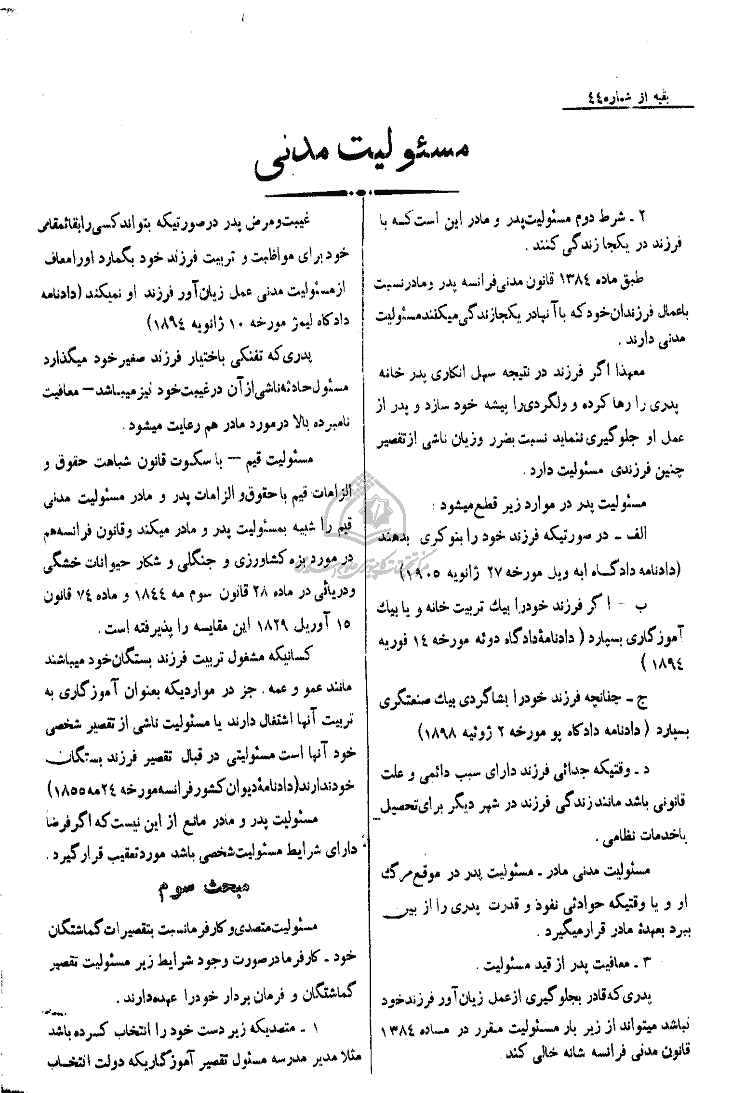 بقیه از شماره ٤٤
مسئولیت مدنی
۲ ـ شرط دوم مسئولیت پدر و مادر این است که با
فرزند در یکجا زندگی کنند .
طبق ماده ۱۳۸٤ قانون مدنی فرانسه پدر و مادر نسبت
باعمال فرزندان خود که با آنها در یکجا زندگی میکنند مسئولیت
مدنی دارند .
معهذا اگر فرزند در نتیجه سهل انکاری پدر خانه
پدری را رها کرده و ولگردی را پیشه خود سازد و پدر از
عمل او جلوگیری ننماید نسبت بضرر و زیان ناشی از تقصیر
چنین فرزندی مسئولیت دارد .
مسئولیت پدر در موارد زیر قطع میشود :
الف ـ در صورتیکه فرزند خود را بنوکری بدهند
(دادنامه دادگاه ابه ویل مورخه ۲۷ ژانویه ۱۹۰۵)
ب ـ اگر فرزند خود را بیك تربیت خانه و یا بیك
آموزگاری بسپارد ( دادنامهٔ دادگاه دوئه مورخه ۱٤ فوریه
۱۸۹٤ )
ج ـ چنانچه فرزند خود را بشاگردی بیك صنعتگری
بسپارد ( دادنامه دادگاه پو مورخه ۲ ژوئیه ۱۸۹۸)
د ـ وقتیکه جدائی فرزند دارای سبب دائمی و علت
قانونی باشد مانند زندگی فرزند در شهر دیگر برای تحصیل
یا خدمات نظامی .
مسئولیت مدنی مادر ـ مسئولیت پدر در موقع مرگ
او و یا وقتیکه حوادثی نفوذ و قدرت پدری را از بین
ببرد بعهدهٔ مادر قرار میگیرد .
۳ ـ معافیت پدر از قید مسئولیت .
پدری که قادر بجلوگیری از عمل زیان آور فرزند خود
نباشد میتواند از زیر بار مسئولیت مقرر در ماده ۱۳۸٤
قانون مدنی فرانسه شانه خالی کند .
غیبت و مرض پدر در صورتیکه بتواند کسی را بقائمقامی
خود برای مواظبت و تربیت فرزند خود بگمارد او را معاف
از مسئولیت مدنی عمل زیان آور فرزند او نمیکند (دادنامه
دادگاه لیمژ مورخه ۱۰ ژانویه ۱۸۹٤)
پدری که تفنکی باختیار فرزند صغیر خود میگذارد
مسئول حادثه ناشی از آن در غیبت خود نیز میباشد — معافیت
نامبرده بالا در مورد مادر هم رعایت میشود .
مسئولیت قیم — با سکوت قانون شباهت حقوق و
الزامات قیم با حقوق و الزامات پدر و مادر مسئولیت مدنی
قیم را شبیه بمسئولیت پدر و مادر میکند وقانون فرانسه هم
در مورد بزه کشاورزی و جنگلی و شکار حیوانات خشگی
ودریائی در ماده ۲۸ قانون سوم مه ۱۸٤٤ و ماده ۷٤ قانون
۱۵ آوریل ۱۸۲۹ این مقایسه را پذیرفته است .
کسانیکه مشغول تربیت فرزند بستگان خود میباشند
مانند عمو و عمه . جز در مواردیکه بعنوان آموزگاری به
تربیت آنها اشتغال دارند یا مسئولیت ناشی از تقصیر شخصی
خود آنها است مسئولیتی در قبال تقصیر فرزند بستگان
خود ندارند (دادنامهٔ دیوان کشور فرانسه مورخه ۲٤ مه ۱۸۵۵)
مسئولیت پدر و مادر مانع از این نیست که اگر فرضا
دارای شرایط مسئولیت شخصی باشد مورد تعقیب قرار گیرد .
مبحث سوم
مسئولیت متصدی و کارفرما نسبت بتقصیرات گماشتگان
خود ـ کارفرما در صورت وجود شرایط زیر مسئولیت تقصیر
گماشتگان و فرمان بردار خود را عهده دارند .
۱ ـ متصدیکه زیر دست خود را انتخاب کرده باشد
مثلا مدیر مدرسه مسئول تقصیر آموزگاریکه دولت انتخاب